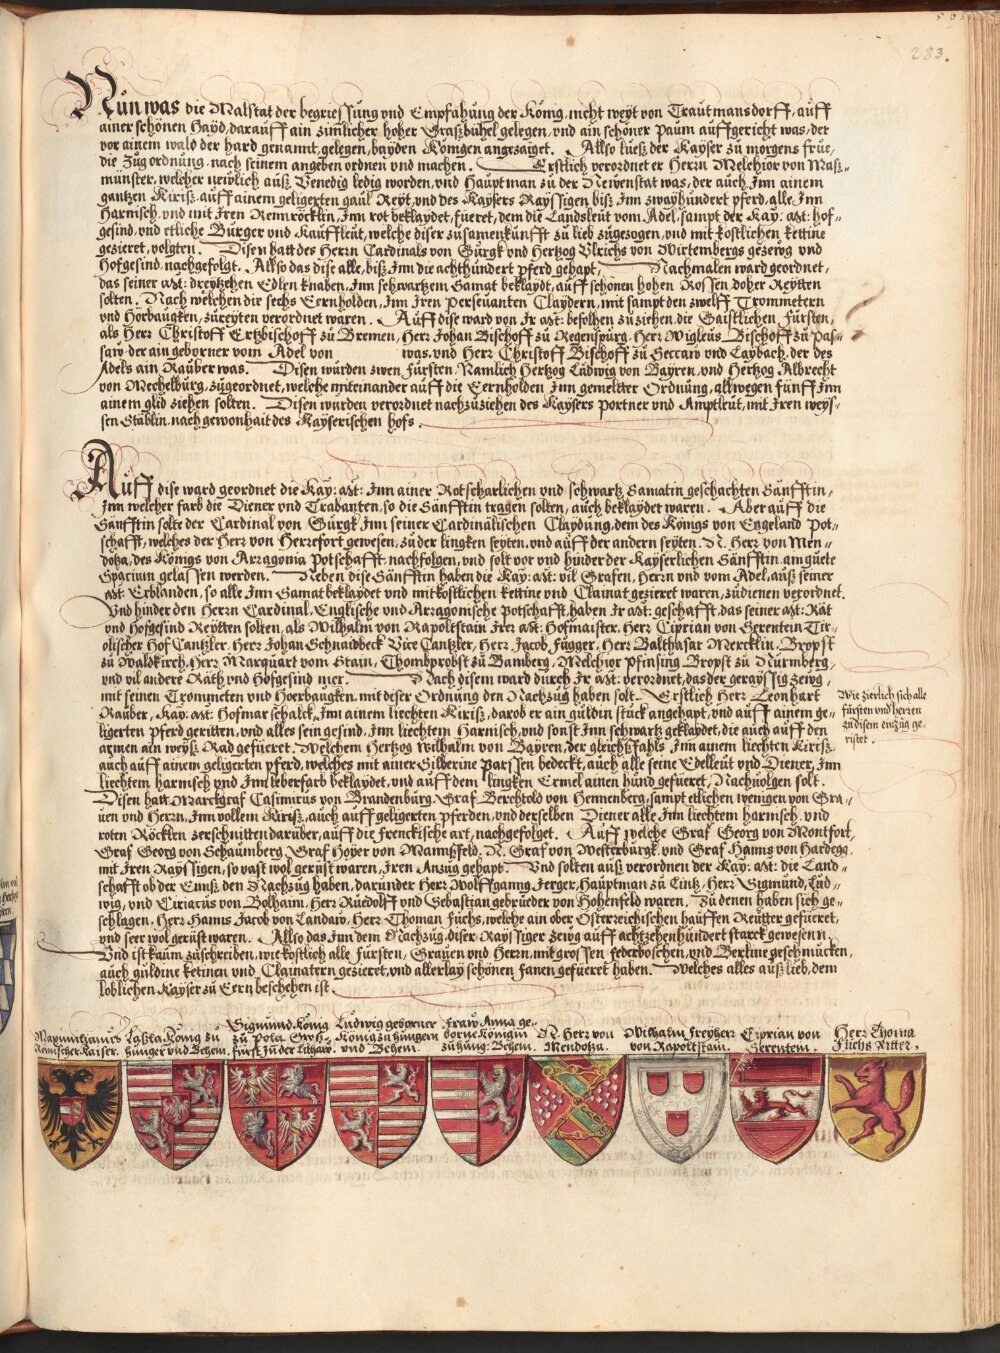 283.
Nun was die Malstat der begriessung vnd Empfahung der König, nicht weyt von Trautmansdorff, auff
ainer schönen Hayd, darauff ain zimlicher hoher Graßbühel gelegen, vnd ain schöner Paum auffgericht was, der
vor ainem wald der hard genannt, gelegen, bayden Königen angezaiget. Allso lüeß der Kayser zu morgens früe,
die Zugordnung, nach seinem angeben ordnen vnd machen. Erstlich verordnet er Herrn Melchior von Maß-
münster, welcher newlich auß Venedig ledig worden, vnd Hauptman zu der Newenstat was, der auch Inn ainem
gantzen Kiriß, auff ainem geligerten gaul Reyt, vnd des Kaysers Rayssigen, biß Inn zwayhundert pferd, alle Inn
Harnisch, vnd mit Iren Rennröcklin, Inn rot beklaydet, füeret, dem die Landsleut vom Adel, sampt der Kay: Mt: hof-
gesind, vnd etliche Burger vnd Kauffleut, welche diser zusamenkunfft zu lieb zugezogen, vnd mit kostlichen kettine
gezieret, volgten. Disen hatt des Herrn Cardinals von Gurgk vnd Hertzog Vlrichs von Wirtembergs gezewg vnd
Hofgesind, nachgefolgt. Allso das dise alle, biß Inn die achthundert pferd gehapt, Nachmalen ward geordnet,
das seiner Mt: dreytzehen Edlen knaben, Inn schwartzem Samat beklaydt, auff schönen hohen Rossen, doher Reytten
solten. Nach welchen die sechs Eernholden, Inn Iren Perseuanten Claydern, mit sampt den zwelff Trommetern
vnd Hörbaugken, zureyten verordnet waren. Auff dise ward von Ir Mt: befolhen zu ziehen, die Gaistlichen Fürsten,
als Herr Christoff Ertzbischoff zu Bremen, Herr Johan Bischoff zu Regenspurg, Herr Wigleus Bischoff zu Pas-
saw, der ain geborner vom Adel von was, vnd Herr Christoff Bischoff zu Seccaw vnd Laybach, der des
Adels ain Rauber was. Disen wurden zwen Fürsten, Namlich Hertzog Ludwig von Bayren, vnd Hertzog Albrecht
von Mechelburg, zugeordnet, welche mit einander auff die Eernholden Inn gemelter Ordnung, allwegen fünff Inn
ainem glid ziehen solten. Disen wurden verordnet nachzuziehen des Kaysers Portner vnd Amptleut, mit Iren weys-
sen Stäblin, nach gewonhait des Kayserischen hofs.
Auff dise ward geordnet die Kay: Mt: Inn ainer Rotscharlichen vnd schwartz Samatin geschachten Sänfftin,
Inn welcher farb die Diener vnd Trabanten, so die Sänfftin tragen solten, auch beklaydet waren. Aber auff die
Sänfftin solte der Cardinal von Gurgk Inn seiner Cardinälischen Claydung, dem des Königs von Engeland Pot-
schafft, welches der Herr von Herrefort gewesen, zu der lingken seyten, vnd auff der andern seyten, N. Herr von Men-
dotza, des Königs von Arragonia Potschafft, nachfolgen, vnd solt vor vnd hinder der Kayserlichen Sänfftin, am guete
Spacium gelassen werden. Neben dise Sänfftin haben die Kay: Mt: vil Grafen, Herrn vnd vom Adel, auß seiner
Mt: Erblanden, so alle Inn Samat beklaydet vnd mit kostlichen kettine vnd Clainat gezieret waren, zu dienen verordnet.
Vnd hinder den Herrn Cardinal, Englische vnd Arragonische Potschafft, haben Ir Mt: geschafft, das seiner Mt: Rät
vnd Hofgesind Reytten solten, als Wilhalm von Rapoltstain Irer Mt: Hofmaister, Herr Ciprian von Serentein Tir-
olischer Hof Cantzler, Herr Johan Schnaidbeck Vice Cantzler, Herr Jacob Fugger, Herr Balthasar Mercklin, Bropst
zu Waldkirch, Herr Marquart vom Stain, Thombrobst zu Bamberg, Melchior Pfinsing Bropst zu Nurmberg,
vnd vil andere Räth vnd Hofgesind mer. Nach disem ward durch Ir Mt: verordnet, das der gerayssig zewg,
mit seinen Trommeten vnd Hoerbaugken, mit deser Ordnung den Nachzug haben solt. Erstlich Herr Leonhart
Rauber, Kay: Mt: Hofmarschalck, Inn ainem liechten Kiriß, darob er ain guldin stück angehapt, vnd auff ainem ge-
ligerten pferd geritten, vnd alles sein gesind, Inn liechtem Harnisch, vnd sonst Inn schwartz geklaydet, die auch auff den
armen ain weyß Rad gefüeret. Welchem Hertzog Wilhalm von Bayren, der gleichsfahls Inn ainem liechten Kiriß,
auch auff ainem geligerten pferd, welches mit ainer Silberine Parssen bedeckt, auch alle seine Edelleut vnd Diener, Inn
liechtem harnisch vnd Inn leberfarb beklaydet, vnd auff dem lingken Ermel ainen bund gefueret, Nachuolgen solt.
Disen hatt Marckgraf Casimirus von Brandenburg, Graf Berchtold von Hennenberg, sampt etlichen wenigen von Gra-
uen vnd Herrn, Inn vollem Kiriß, auch auff geligerten pferden, vnd derselben Diener alle Inn liechtem harnisch, vnd
roten Röcklen zerschnitten darüber, auff die Frenckische art, nachgefolget. Auff welche Graf Georg von Montfort,
Graf Georg von Schaumberg, Graf Hoyer von Mannßfeld, N. Graf von Westerburgk, vnd Graf Hanns von Hardegg,
mit Iren Rayssigen, so vast wol gerüst waren, Iren Anzug gehapt. Vnd solten auß verordnen der Kay: Mt: die Land-
schafft ob der Ennß, den Nachzug haben, darunder Herr Wolffganng Jerger, Hauptman zu Lintz, Herr Sigmund, Lud-
wig, vnd Ciriacus von Polhaim, Herr Ruedolff vnd Sebastian gebrüeder von Hohenfeld waren. Zu denen haben sich ge-
schlagen, Herr Hanns Jacob von Landaw, Herr Thoman Fuchs, welche ain ober Osterreichischen hauffen Reütter gefüeret,
vnd seer wol gerüst waren. Allso das Inn dem Nachzug, diser Rayssiger zewg auff achtzehenhundert starck gewesenn.
Vnd ist kaum zuschreiben, wie kostlich alle Fürsten, Grauen vnd Herrn, mit grossen federboschen, vnd Berline geschmucken,
auch guldine ketinen vnd Clainatern gezieret, vnd allerlay schönen Fanen gefüeret haben. Welches alles auß lieb, dem
loblichen Kayser zu Eern beschehen ist.
Wie zierlich sich alle
fürsten vnd herren
zu disem einzug ge-
ristet.
Maximilianus
Römischer Kaiser.
Laßla König zu
Hunger vnd Behem.
Sigmund König
zu Pola Groß-
fürst in der Littaw.
Ludwig geporner
König zu Hungern
vnd Behem.
Fraw Anna ge-
borne Königin
zu Hung: Behem.
N. Herr von
Mendotza.
Wilhalm Freyherr
von Rapoltstain.
Ciprian von
Serentein.
Herr Thoma
Fuchs Ritter.